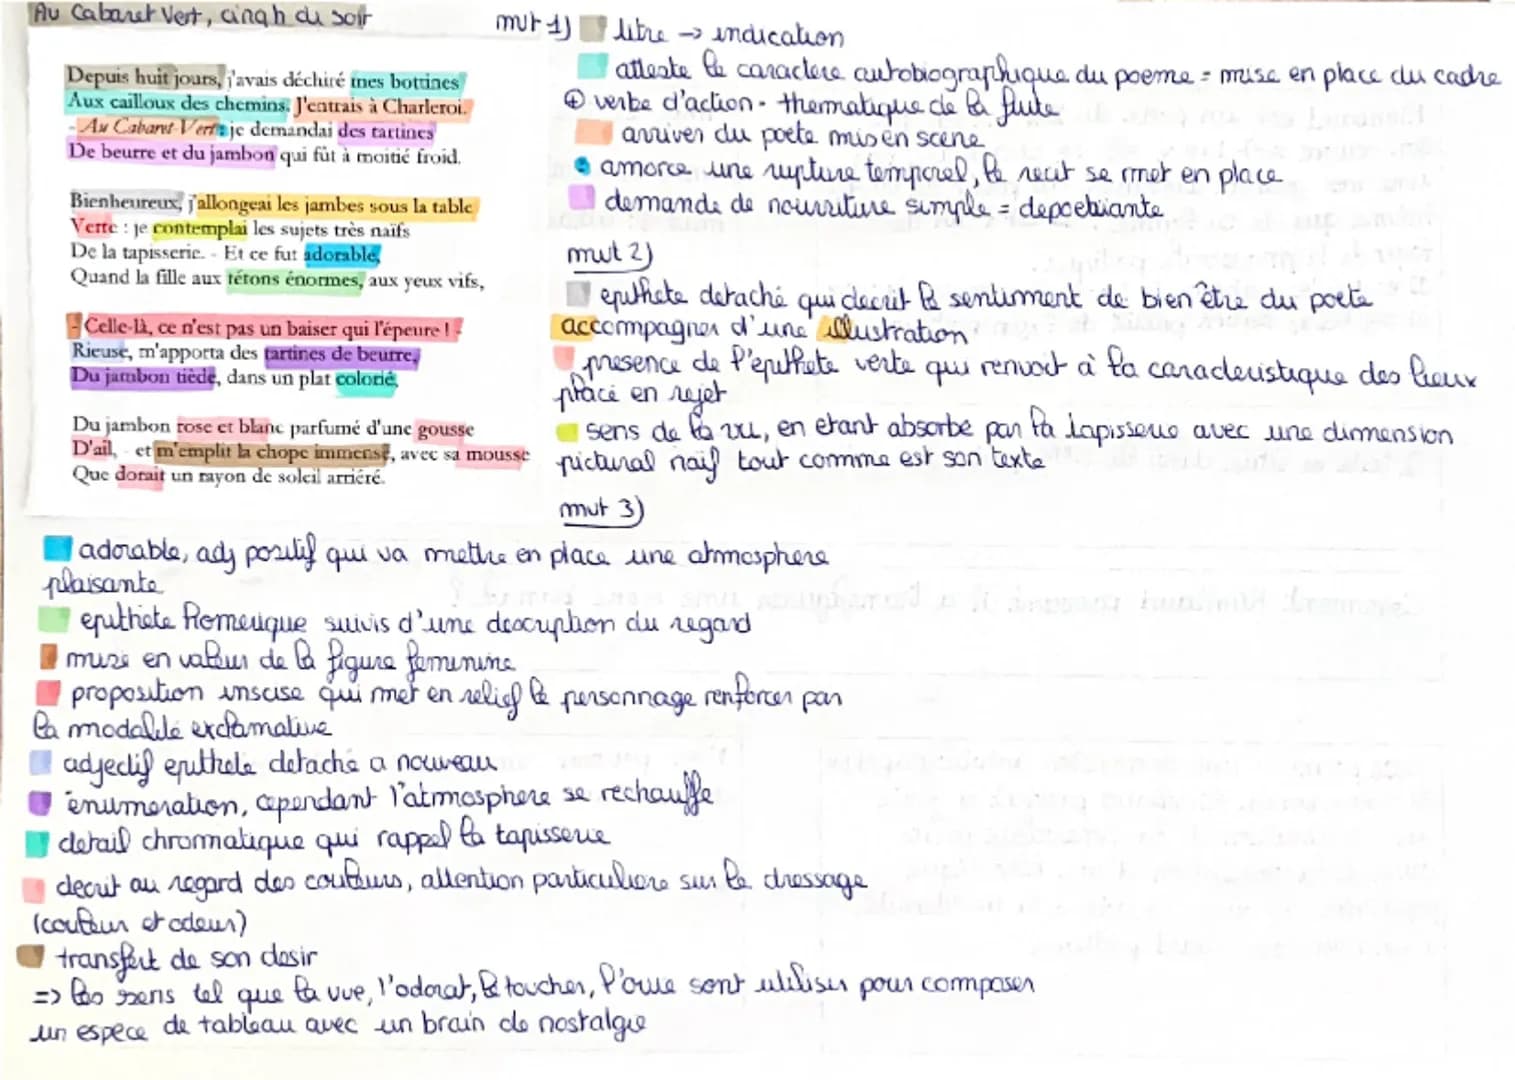 Au Cabaret Vert, cinq h du soir
Depuis huit jours, j'avais déchiré mes bottines
Aux cailloux des chemins. J'entrais à Charleroi.
- Au Cabaret-Vert : je demandai des tartines
De beurre et du jambon qui fût à moitié froid.
Bienheureux, j'allongeai les jambes sous la table
Verte : je contemplai les sujets très naïfs
De la tapisserie. - Et ce fut adorable,
Quand la fille aux tétons énormes, aux yeux vifs,
- Celle-là, ce n'est pas un baiser qui l'épeure ! -
Rieuse, m'apporta des tartines de beurre,
Du jambon tiède, dans un plat colorié,
Du jambon rose et blanc parfumé d'une gousse
D'ail, - et m'emplit la chope immense, avec sa mousse
Que dorait un rayon de soleil arriéré.
mvt 1) titre -> indication
atteste le caractere autobiographique du poeme = mise en place du cadre
⊕ verbe d'action - thematique de la fuite
arriver du poete mis en scène
amorce une rupture temporel, le recit se met en place
demande de nourriture simple = depoetisante
mvt 2)
epithete detaché qui decrit le sentiment de bien être du poete
accompagner d'une illustration
presence de l'epithete verte qui renvoit à la caracteristique des lieux
placé en rejet
sens de la vu, en etant absorbe par la tapisserie avec une dimmension
pictural naïf tout comme est son texte
mvt 3)
adorable, adj positif qui va mettre en place une atmosphere
plaisante
epithete Homerique suivis d'une description du regard
mise en valeur de la figure feminine
proposition inscise qui met en relief le personnage renforcer par
la modalité exclamative
adjectif epithete detaché a nouveau
énumeration, cependant l'atmosphere se rechauffe
detail chromatique qui rappel la tapisserie
decrit au regard des couleurs, attention particuliere sur le dressage
(couleur et odeur)
transfert de son desir
=> les sens tel que la vue, l'odorat, le toucher, l'ouie sont utiliser pour composer
un espece de tableau avec un brain de nostalgie